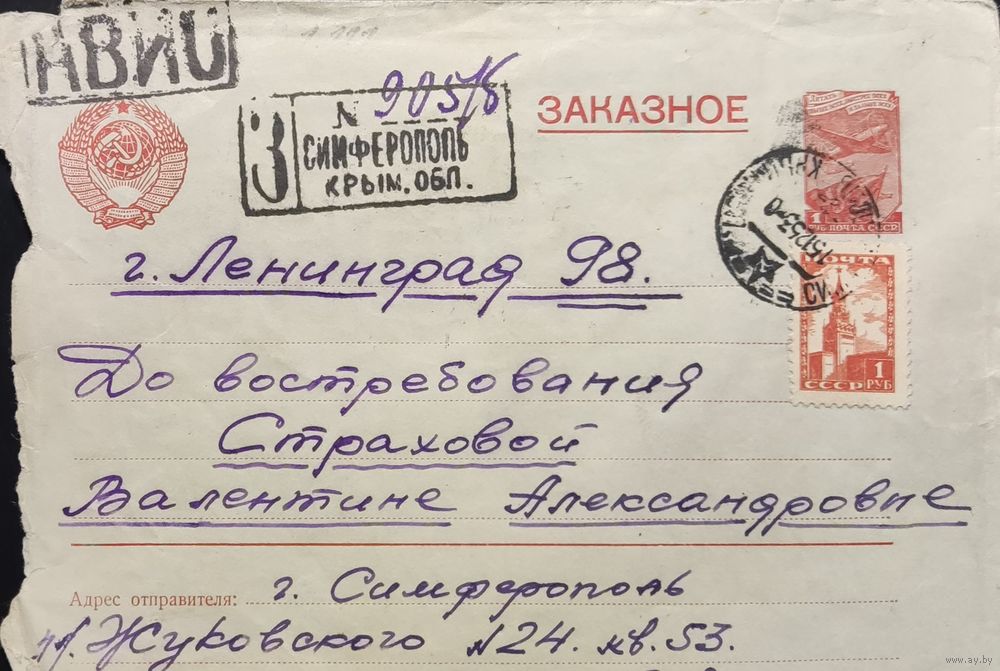 АВИО
З
N 9057б
СИМФЕРОПОЛЬ
КРЫМ. ОБЛ.
ЗАКАЗНОЕ
1
РУБ ПОЧТА СССР
ПОЧТА
СССР
1
РУБ
г. Ленинград 98.
До востребования
Страховой
Валентине Александровне
Адрес отправителя: г. Симферополь
ул. Жуковского №24. кв. 53.
www.ay.by